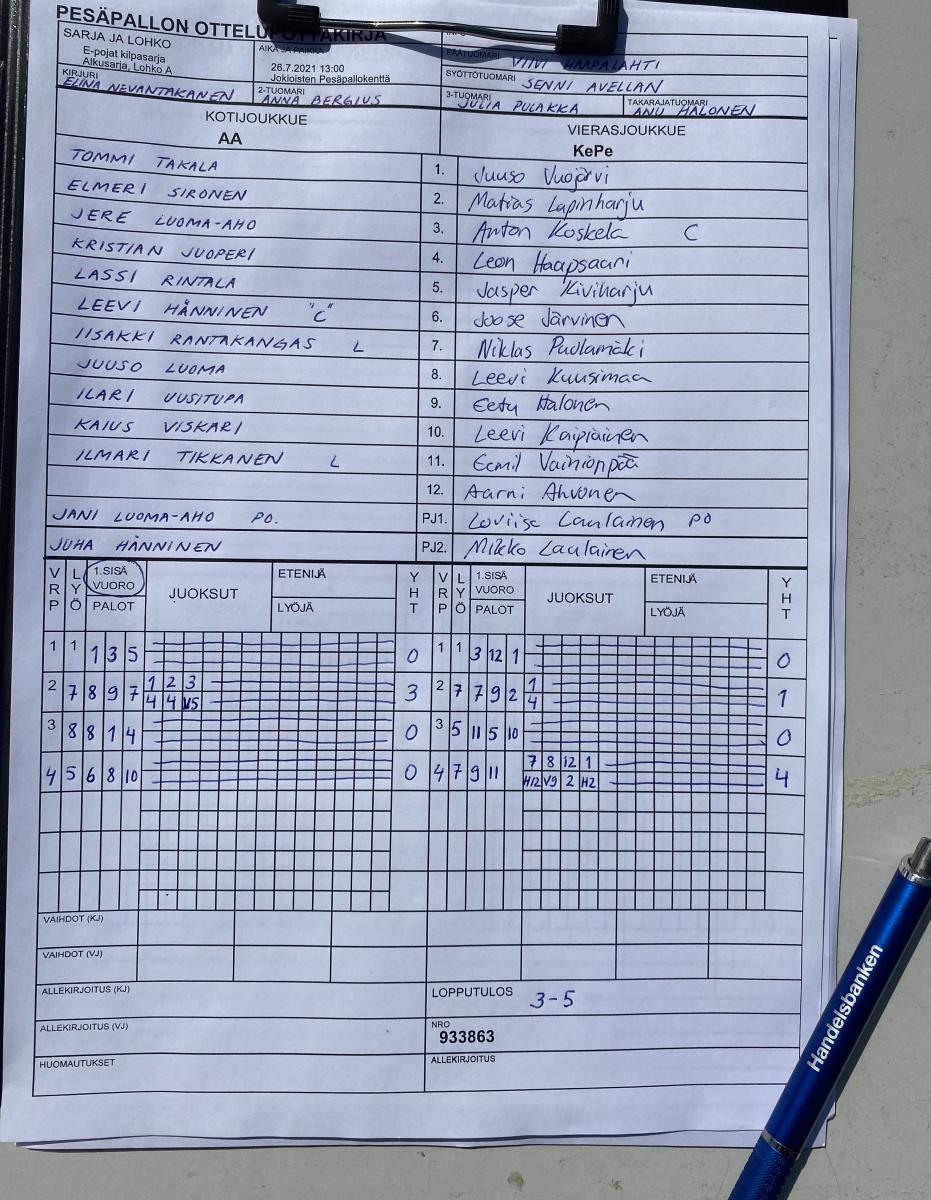 PESÄPALLON OTTELUPÖYTÄKIRJA
SARJA JA LOHKO
E-pojat kilpasarja
Alkusarja, Lohko A
AIKA JA PAIKKA
26.7.2021 13:00
Jokioisten Pesäpallokenttä
PÄÄTUOMARI VIIVI HAAPALAHTI
SYÖTTÖTUOMARI SENNI AVELLAN
KIRJURI ELINA NEVANTAKANEN
2-TUOMARI ANNA BERGIUS
3-TUOMARI JULIA PULAKKA
TAKARAJATUOMARI ANU HALONEN
KOTIJOUKKUE
AA
VIERASJOUKKUE
KePe
TOMMI TAKALA 1. Juuso Vuojärvi
ELMERI SIRONEN 2. Matias Lapinharju
JERE LUOMA-AHO 3. Anton Koskela C
KRISTIAN JUOPERI 4. Leon Haapsaari
LASSI RINTALA 5. Jasper Kiviharju
LEEVI HÄNNINEN "C" 6. Joose Järvinen
IISAKKI RANTAKANGAS L 7. Niklas Puolamäki
JUUSO LUOMA 8. Leevi Kuusimaa
ILARI UUSITUPA 9. Eetu Halonen
KAIUS VISKARI 10. Leevi Kaipiainen
ILMARI TIKKANEN L 11. Eemil Vainionpää
12. Aarni Ahvonen
JANI LUOMA-AHO PO. PJ1. Loviisa Laulainen PO
JUHA HÄNNINEN PJ2. Mikko Laulainen
VRP LYÖ 1.SISÄ VUORO PALOT JUOKSUT ETENIJÄ LYÖJÄ YHT VRP LYÖ 1.SISÄ VUORO PALOT JUOKSUT ETENIJÄ LYÖJÄ YHT
1 1 1 3 5 0 1 1 3 12 1 0
2 7 8 9 7 1 2 3 3 2 7 7 9 2 1 1
4 4 V5 4
3 8 8 1 4 0 3 5 11 5 10 0
4 5 6 8 10 0 4 7 9 11 7 8 12 1 4
H12 V9 2 H2
VAIHDOT (KJ)
VAIHDOT (VJ)
ALLEKIRJOITUS (KJ)
LOPPUTULOS 3-5
ALLEKIRJOITUS (VJ)
NRO
933863
HUOMAUTUKSET
ALLEKIRJOITUS
Handelsbanken